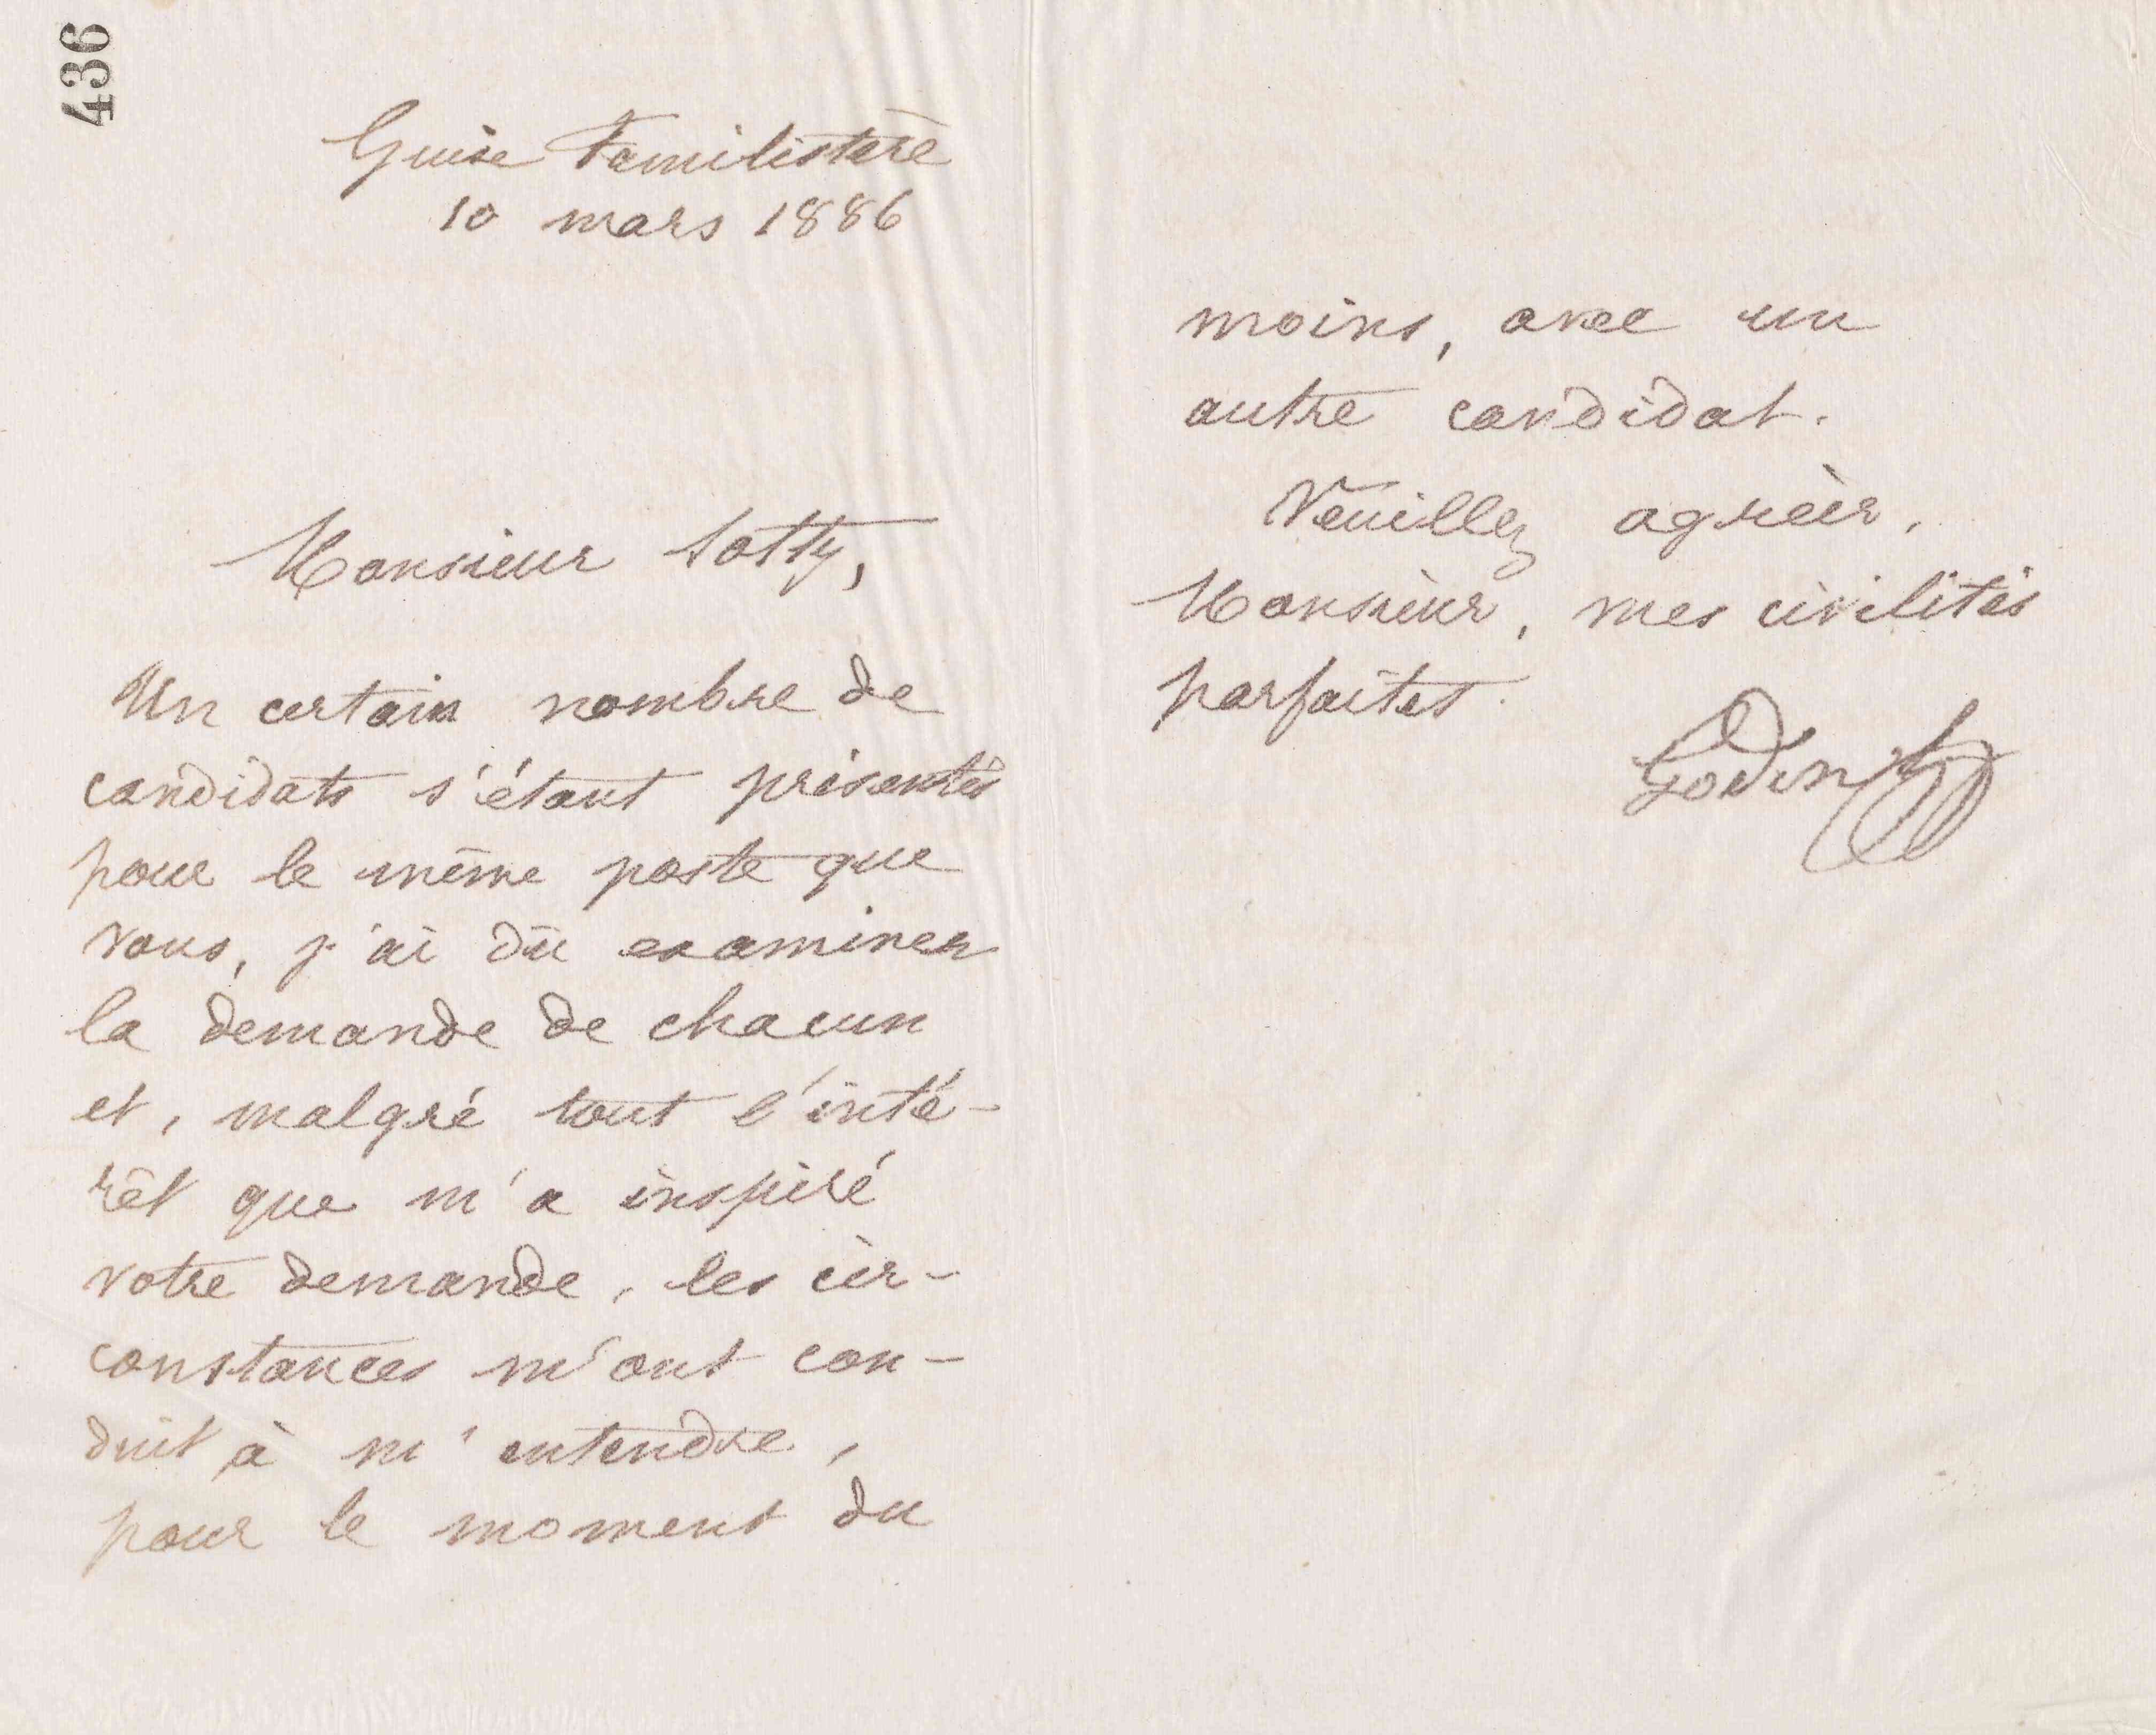 436
Guise Familistère
10 mars 1886
Monsieur Sotty,
Un certain nombre de
candidats s'étant présentés
pour le même poste que
vous, j'ai dû examiner
la demande de chacun
et, malgré tout l'inté-
rêt que m'a inspiré
votre demande, les cir-
constances m'ont con-
duit à m'entendre,
pour le moment du
moins, avec un
autre candidat.
Veuillez agréer,
Monsieur, mes civilités
parfaites.
Godin